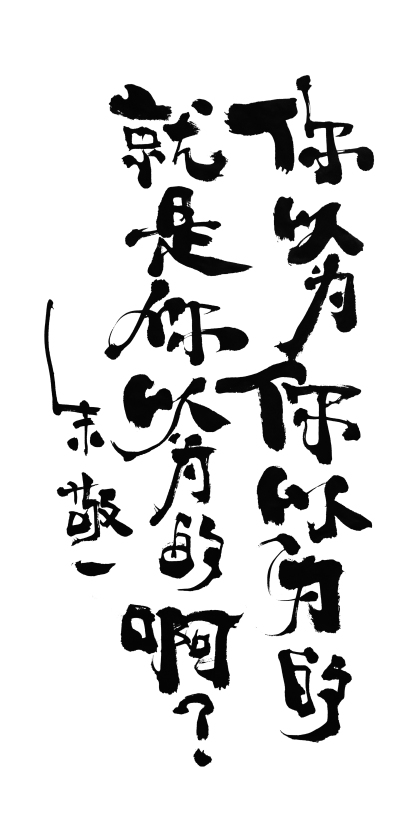 你以为你以为的
就是你以为的啊?
朱敬一